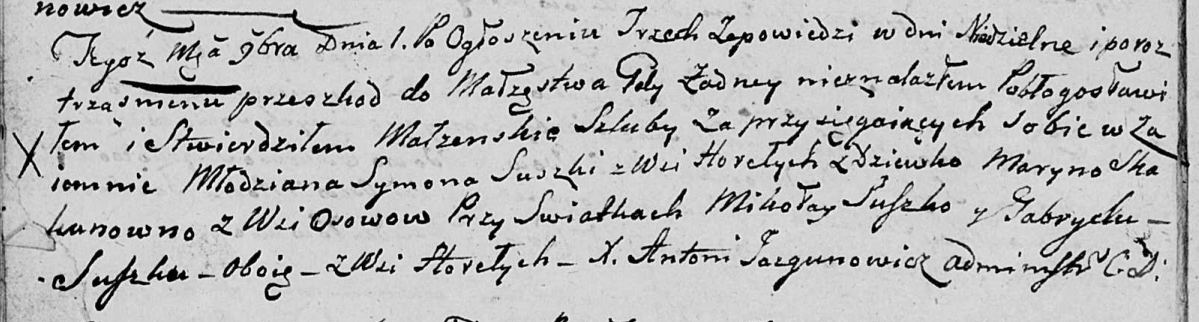 nowicz
Tegoż Mṣä 9bra Dnia 1. Po Ogłoszeniu Trzech Zapowiedzi w dni Niedzielne i poroz
trząsnieniu przeszkod do Małzęstwa Gdy Żadney nieznalazłem Pobłogosławi
łem i Stwierdziłem Małzenskie Szluby Zaprzysięgaiących sobie w Za
iemnie Młodziana Symona Suszki z Wsi Horełych z Dziewko Maryno Ska
kunowno z Wsi Osowow Przy Swiatkach Mikołay Suszko y Gabryelu
Suszku - oboię - z Wsi Horełych - X. Antoni Jazgunowicz